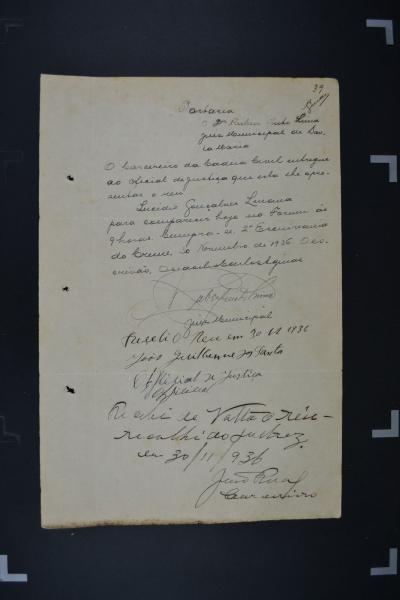 39
Portaria
O Dr. Ruben Lima
Juiz Municipal de San
ta Maria
O Carcereiro da Cadeia Civil entregue
ao oficial de justiça que esta lhe apre
sentar o reu
Lucidio Gonçalves
para comparecer hoje no Forum ás
9 horas. Cumpra-se. 2ª Escrivania
do Crime. 30 Novembro de 1936. O es-
crivão,
Juiz Municipal
Reu em 30 11 1936
João Guilherme dos Santos
Official de Justiça
Recebi de Volta o Réu
recolhido ao
em 30/11/936
João
Carcereiro